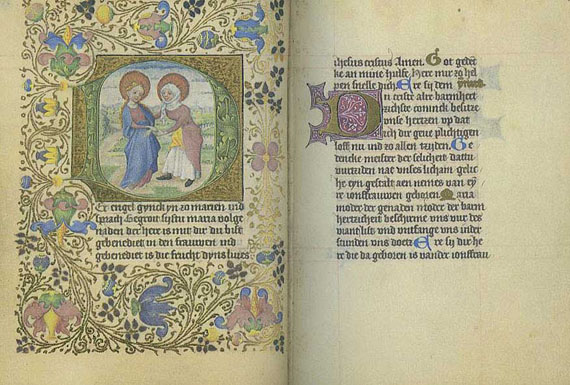 Er engel gynck yn zo marien und
sprach Gegrot systu maria volge
naden der here is mit dir du bist
gebenediet in den frauwen und
gebenediet is die frucht dyns liues
ihesus cristus Amen. Got gedec
ke an mine hulfe Here mir zo hel
pen snelle dich Ere sy dem
O erste alre barmhert
zichste coninck besitze
unse hertzen up dat
wir dir geue plichtigen
loff nu und zo allen zyden. Ge
dencke meister der selicheit dattu
vurtzyden nae unses licham gelic
he eyn gestalt aen nemes van ey
re ionffrauwen geboren Maria
moder der genaden moder der barm
hertzicheit beschirme uns vur des
vianslist und untfange uns inder
stunden uns doetz Ere sy dir he
re die da geboren is vander ionffrau